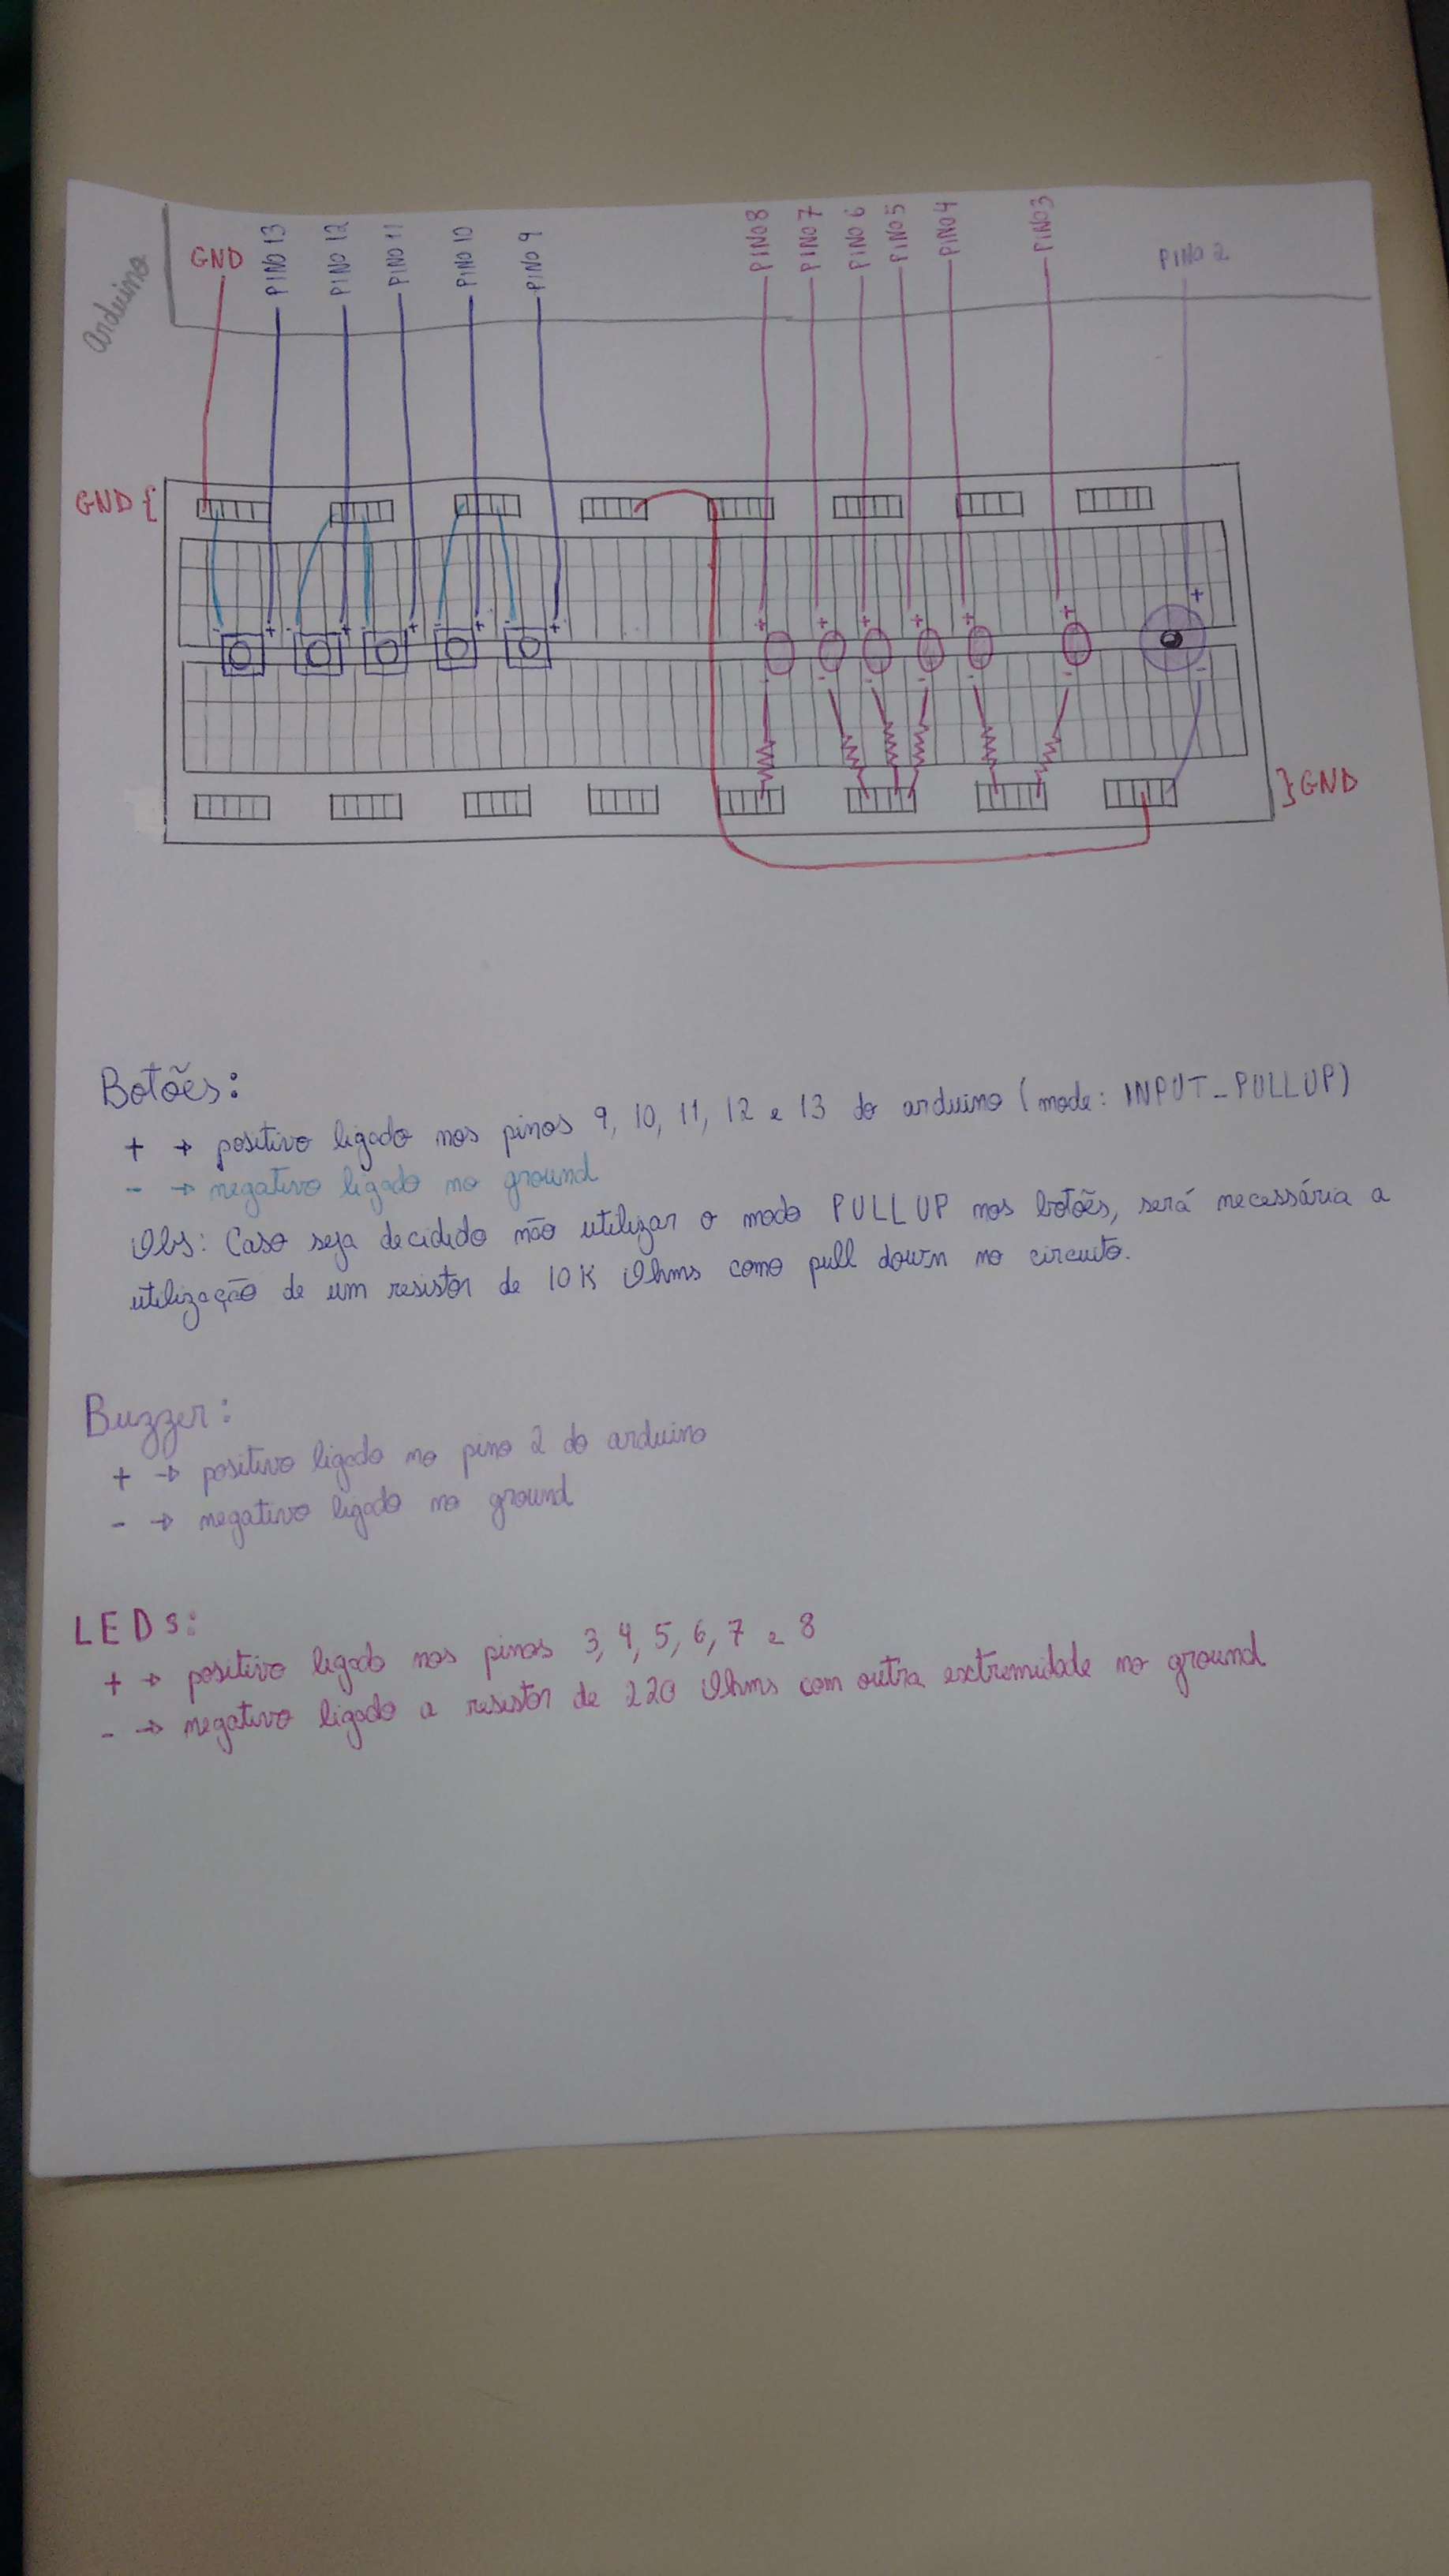 arduino
GND
PINO 13
PINO 12
PINO 11
PINO 10
PINO 9
PINO 8
PINO 7
PINO 6
PINO 5
PINO 4
PINO 3
PINO 2
GND {
- + - + - + - + - +
+ + + + + + +
- - - - - - -
} GND
Botões:
+ → positivo ligado nos pinos 9, 10, 11, 12 e 13 do arduino (mode: INPUT_PULLUP)
- → negativo ligado no ground
Obs: Caso seja decidido não utilizar o modo PULLUP nos botões, será necessária a
utilização de um resistor de 10K Ohms como pull down no circuito.
Buzzer:
+ → positivo ligado no pino 2 do arduino
- → negativo ligado no ground
LEDs:
+ → positivo ligado nos pinos 3, 4, 5, 6, 7 e 8
- → negativo ligado a resistor de 220 Ohms com outra extremidade no ground